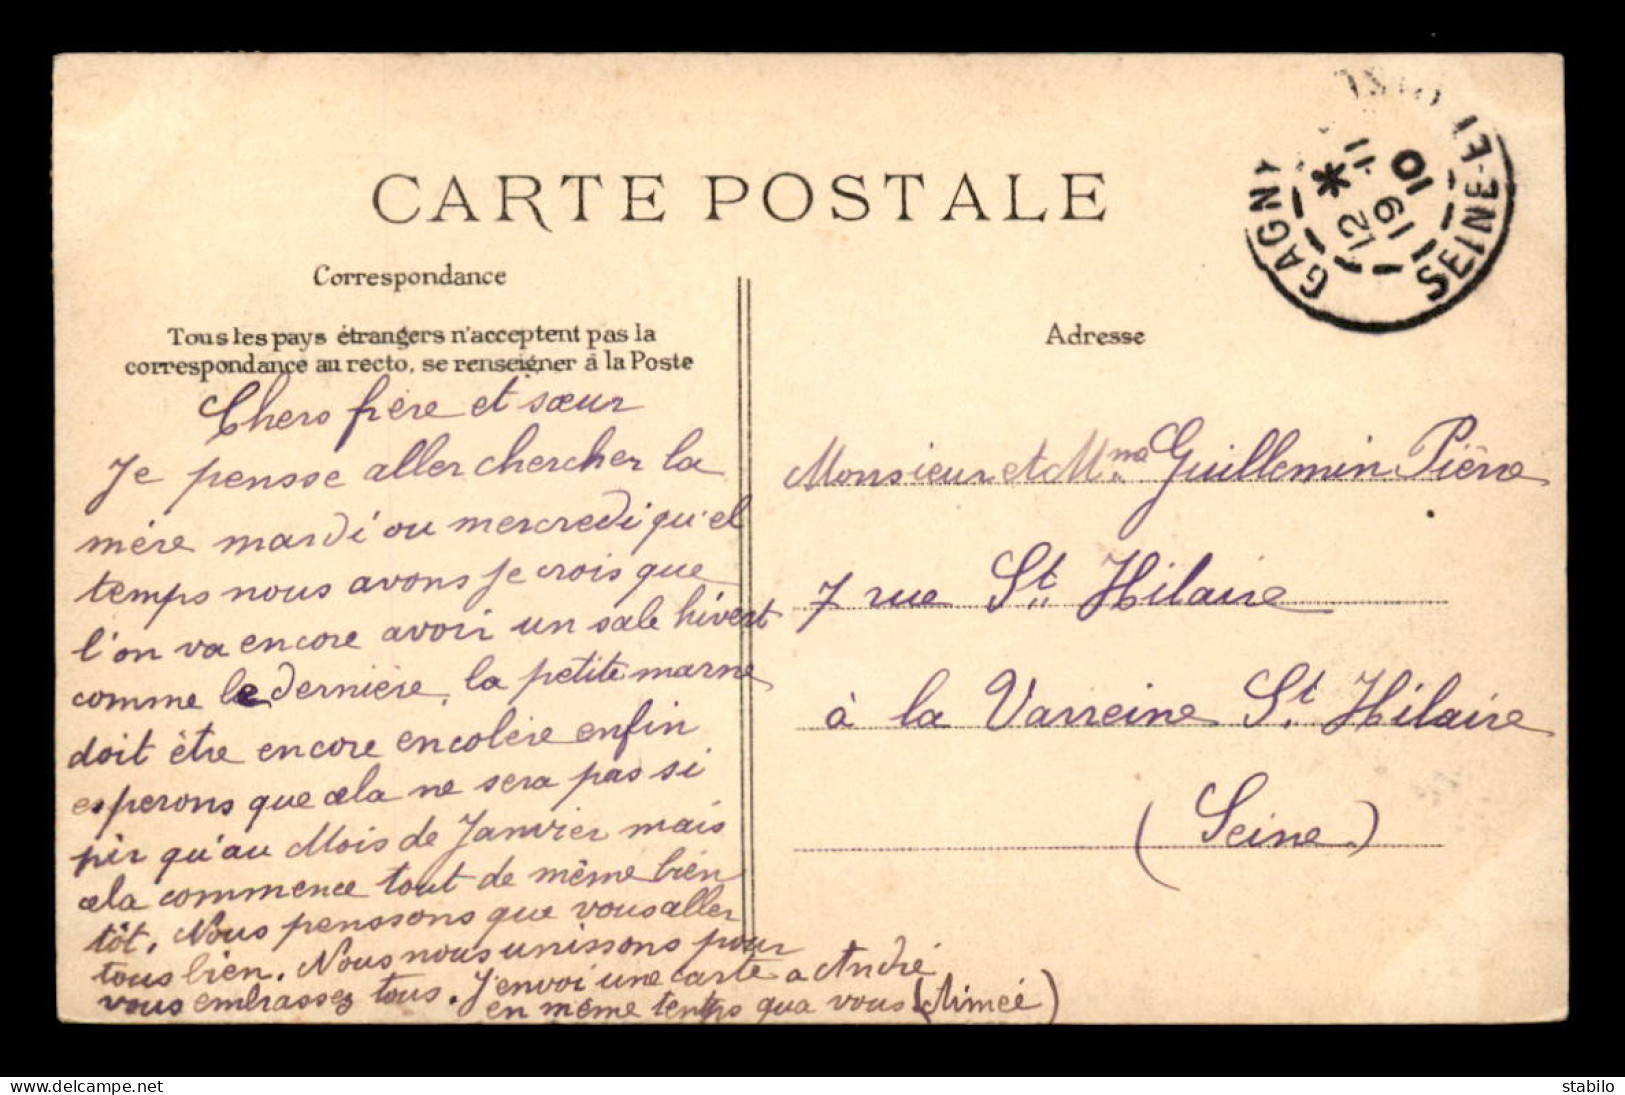 CARTE POSTALE
Correspondance
Tous les pays étrangers n'acceptent pas la
correspondance au recto, se renseigner à la Poste
Chers frère et sœur
Je pensse aller chercher la
mère mardi ou mercredi qu'el
temps nous avons je crois que
l'on va encore avoir un sale hivert
comme le dernière, la petite marne
doit être encore encolère enfin
esperons que cela ne sera pas si
pir qu'au Mois de Janvier mais
cela commence tout de même bien
tôt. Nous penssons que vous aller
tous bien. Nous nous unissons pour
vous embrassez tous. J'envoi une carte a André
en même temps qua vous (Aimée)
GAGNY
SEINE-ET
12 - 11
19 10
Adresse
Monsieur et Mme Guillemin Pière
7 rue St Hilaire
à la Varreine St Hilaire
(Seine.)
delcampe.net
stabilo